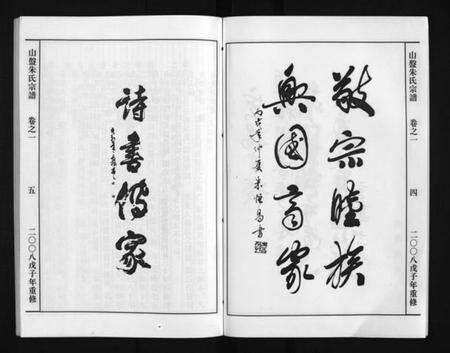 山盤朱氏宗譜 卷之一 四 二〇〇八戊子年重修
敬宗睦族
興國齊家
仲夏朱
書
诗書傳家
山盤朱氏宗譜 卷之一 五 二〇〇八戊子年重修